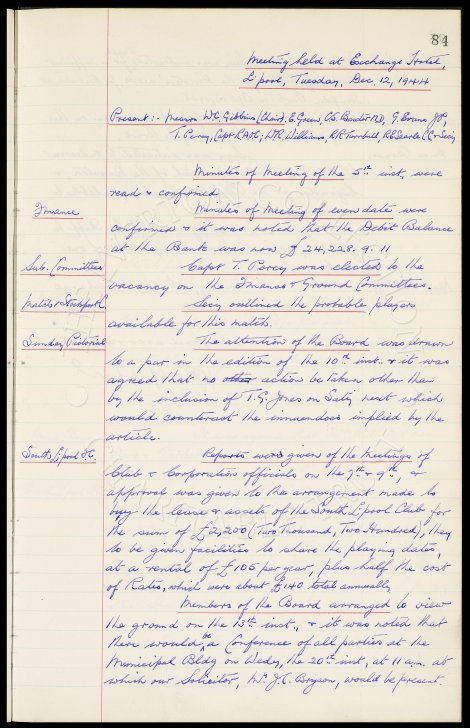 84
Meeting held at Exchange Hotel,
L'pool, Tuesday, Dec. 12, 1944
Present:- Messrs W.C. Gibbins (Chair), E. Green, C.S. Baxter M.D., G. Evans J.P.,
T. Percy, Capt. R.A.M.C; W.R. Williams, R.R. Turnbull, R.E. Searle C.C & Secy
Minutes of Meeting of the 5th inst. were
read & confirmed
Finance
Minutes of Meeting of even date were
confirmed & it was noted that the Debit Balance
at the Bank was now £24,228. 9. 11
Sub. Committees
Capt T. Percy was elected to the
vacancy on the Finance & Ground Committees.
Match v Stockport C.
Secy outlined the probable players
available for this match.
Sunday Pictorial
The attention of the Board was drawn
to a par in the edition of the 10th inst. & it was
agreed that no other action be taken other than
by the inclusion of T.G. Jones on Satdy next which
would counteract the innuendoes implied by the
article.
South L'pool F.C.
Reports were given of the Meetings of
Club & Corporation officials on the 7th & 9th, &
approval was given to the arrangement made to
buy the lease & assets of the South L'pool Club for
the sum of £2,200 (Two Thousand, Two Hundred), they
to be given facilities to share the playing dates,
at a rental of £105 per year, plus half the cost
of Rates, which were about £140 total annually
Members of the Board arranged to view
the ground on the 13th inst., & it was noted that
there would be a Conference of all parties at the
Municipal Bldg on Wedy, the 20th inst, at 11 a.m. at
which our Solicitor, Mr. J.C. Bryson, would be present.